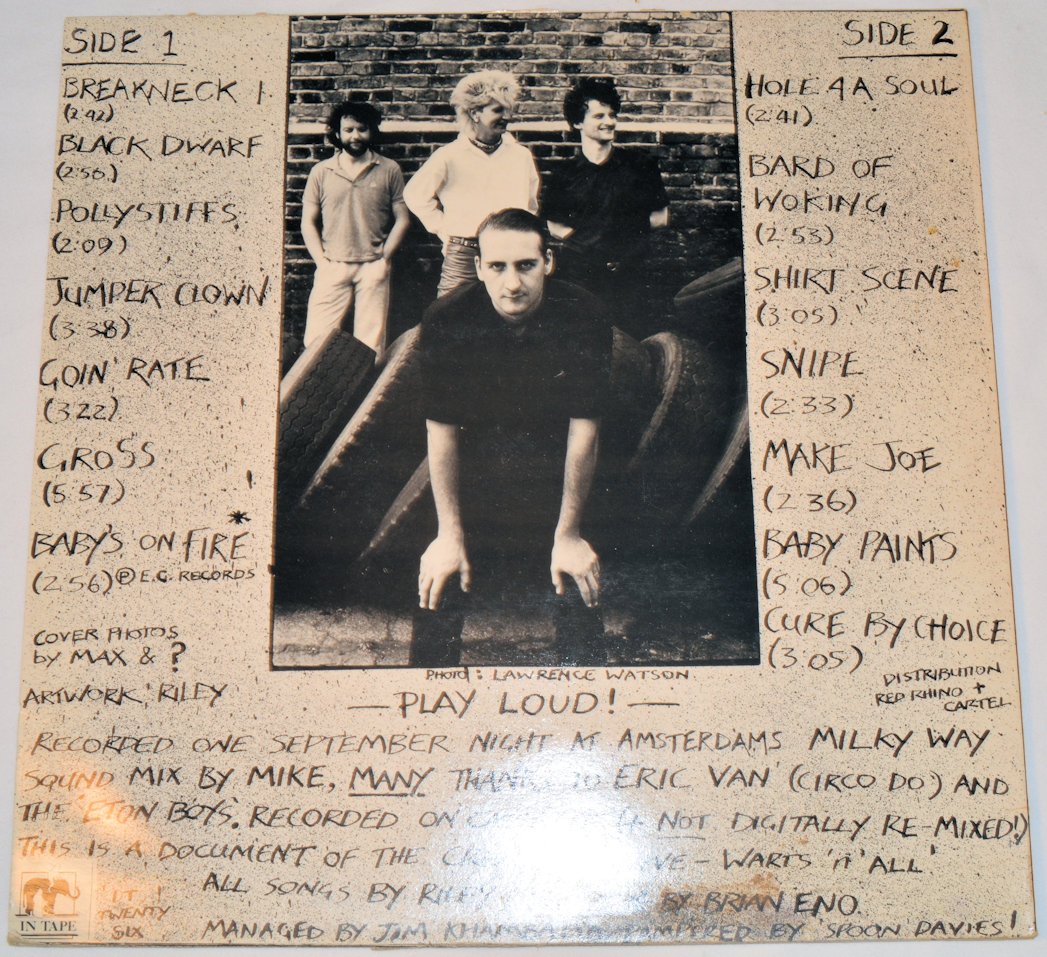 SIDE 1
BREAKNECK 1
(2:42)
BLACK DWARF
(2:56)
POLLYSTIFFS
(2:09)
JUMPER CLOWN
(3:38)
GOIN' RATE
(3:22)
GROSS
(5:57)
*
BABY'S ON FIRE
(2:56) Ⓟ E.G. RECORDS
COVER PHOTOS
by MAX & ?
ARTWORK, RILEY
SIDE 2
HOLE 4 A SOUL
(2:41)
BARD OF
WOKING
(2:53)
SHIRT SCENE
(3:05)
SNIPE
(2:33)
MAKE JOE
(2:36)
BABY PAINTS
(5:06)
CURE BY CHOICE
(3:05)
DISTRIBUTION
RED RHINO +
CARTEL
PHOTO: LAWRENCE WATSON
— PLAY LOUD! —
RECORDED ONE SEPTEMBER NIGHT AT AMSTERDAMS MILKY WAY
SOUND MIX BY MIKE, MANY THANKS TO ERIC VAN' (CIRCO DO) AND
THE 'ETON BOYS'. RECORDED ON NOT DIGITALLY RE-MIXED!)
THIS IS A DOCUMENT OF THE - WARTS 'n' ALL'
ALL SONGS BY RILEY BY BRIAN ENO.
MANAGED BY JIM KHAMBATTA TAMPERED BY 'SPOON DAVIES'!
IN TAPE
IT
TWENTY
SIX